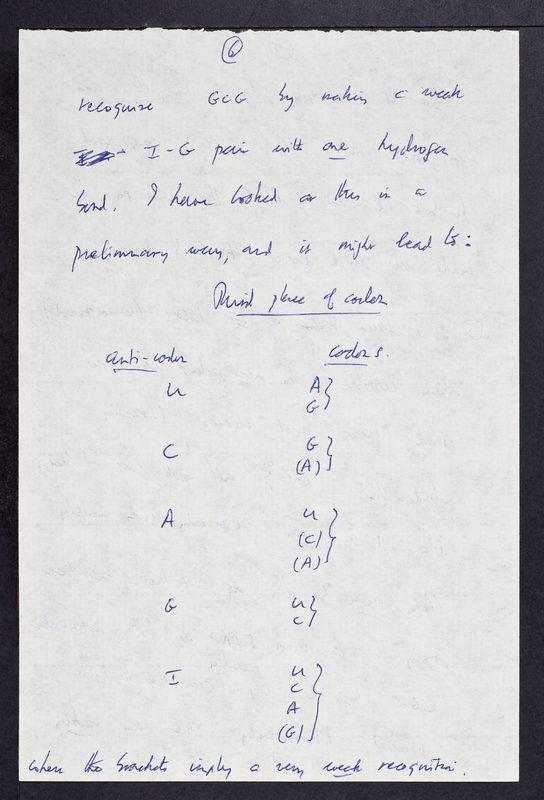 6
recognise GCG by making a weak
I-G pair with one hydrogen
bond. I have looked at this in a
preliminary way, and it might lead to:
Third place of codon
anti-codon codons.
U A
G
C G
(A)
A U
(C)
(A)
G U
C
I U
C
A
(G)
where the brackets imply a very weak recognition.